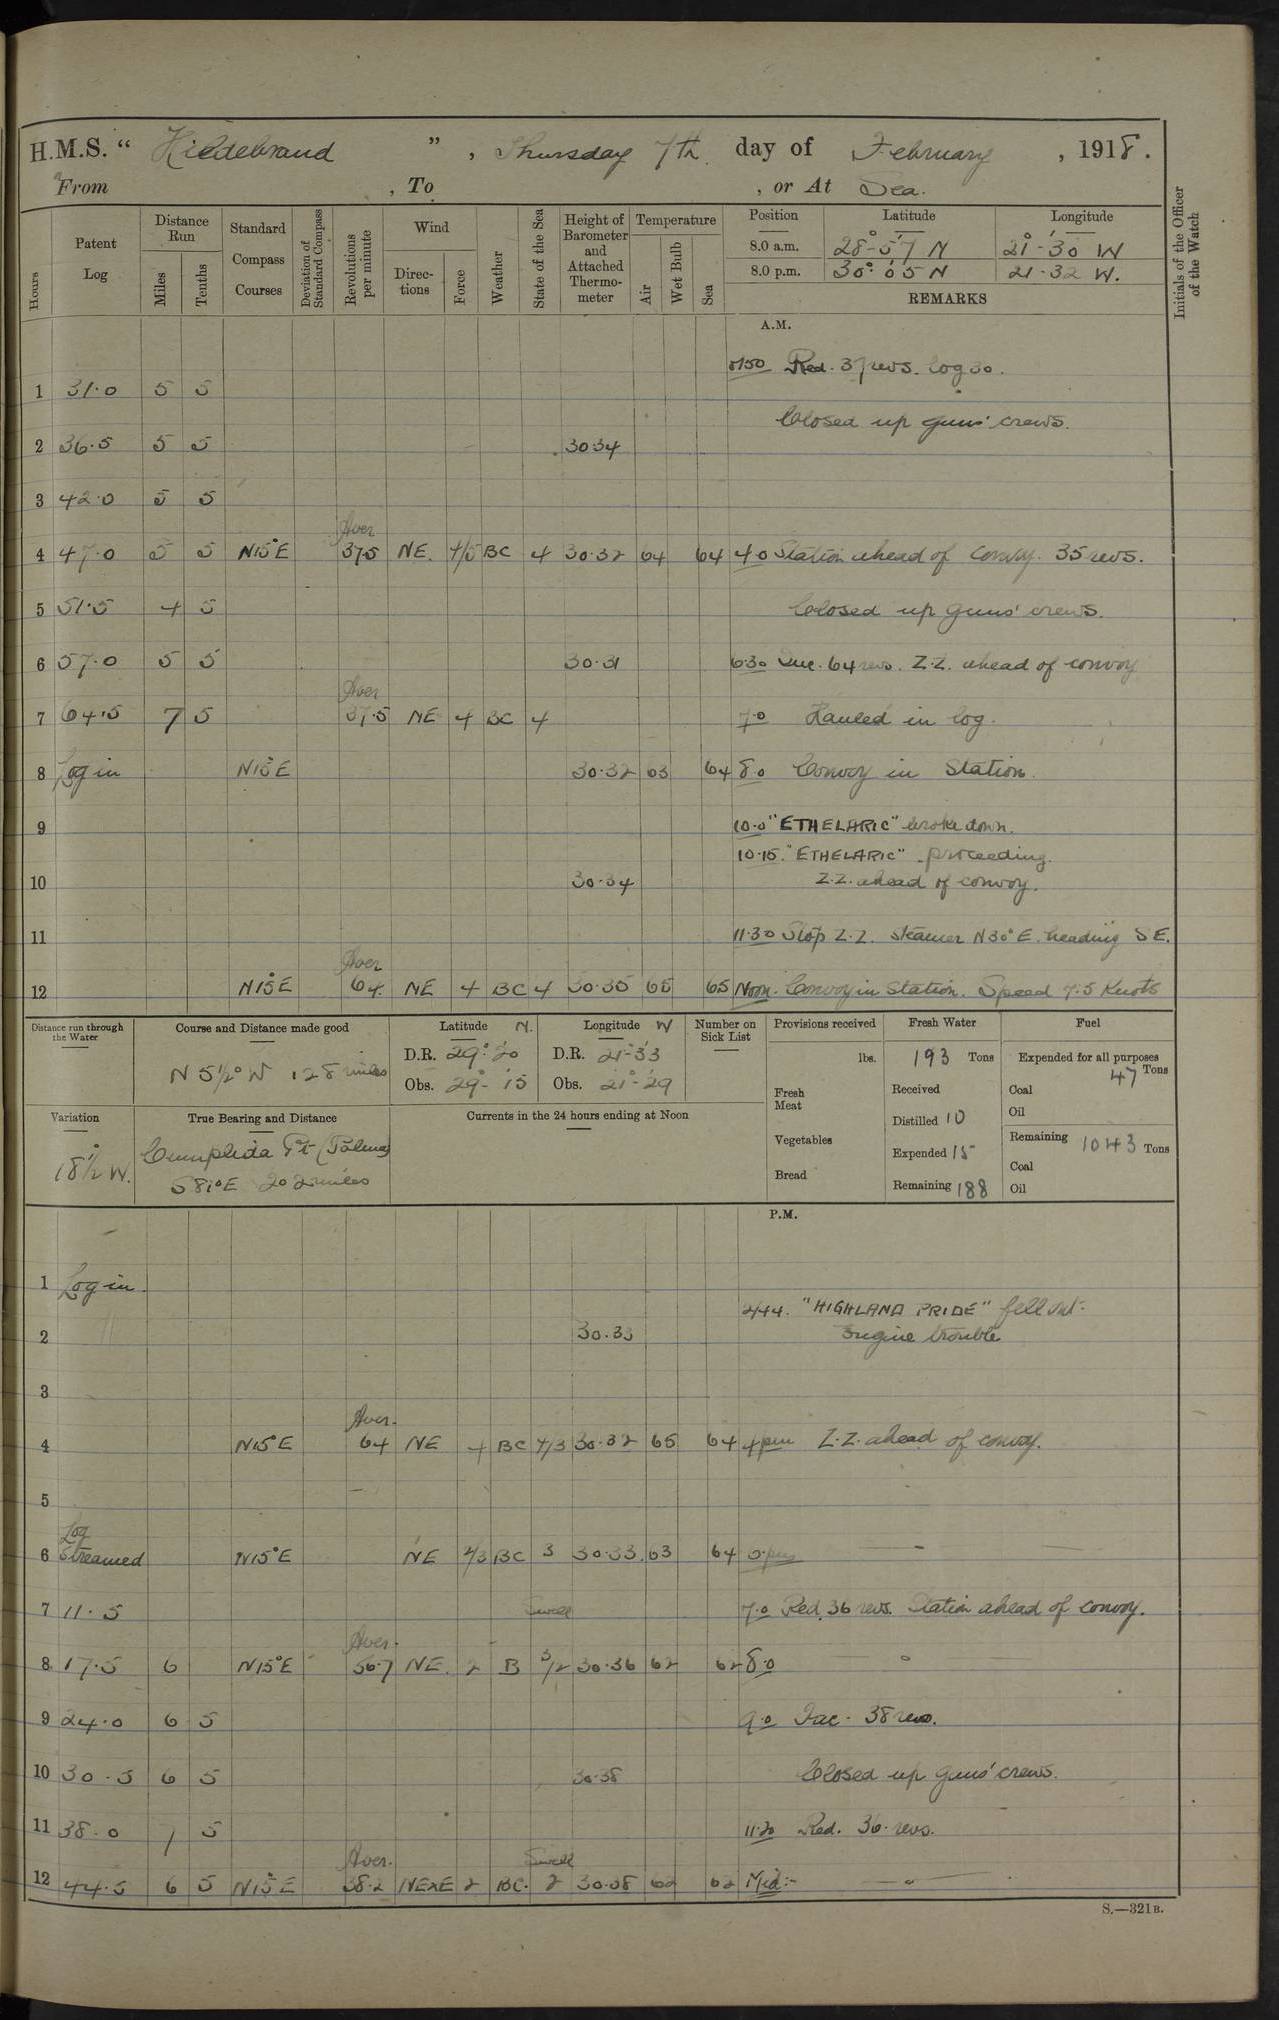 H.M.S. “ Hildebrand ” , Thursday 7th day of February , 1918.
From , To , or At Sea.
Hours
Patent Log
Distance Run
Miles
Tenths
Standard Compass Courses
Deviation of Standard Compass
Revolutions per minute
Wind
Directions
Force
Weather
State of the Sea
Height of Barometer and Attached Thermometer
Temperature
Air
Wet Bulb
Sea
Position Latitude Longitude
8.0 a.m. 28°-57' N 21°-30' W
8.0 p.m. 30°-05' N 21-32 W.
REMARKS
Initials of the Officer of the Watch
A.M.
Red. 37 revs. log 30.
1 31.0 5 5
Closed up guns' crews.
2 36.5 5 5 30.34
3 42.0 5 5
Aver
4 47.0 5 5 N15°E 37.5 NE. 4/5 BC 4 30.32 64 64 4.0 Station ahead of convoy. 35 revs.
5 51.5 4 5 Closed up guns' crews.
6 57.0 5 5 30.31 6.30 Inc. 64 revs. Z.Z. ahead of convoy
Aver
7 64.5 7 5 37.5 NE 4 BC 4 7.0 Hauled in log.
8 Log in N15°E 30.32 63 64 8.0 Convoy in Station.
9 10.0 "ETHELARIC" broke down.
10.15. "ETHELARIC" proceeding.
10 30.34 Z.Z. ahead of convoy.
11 11.30 Stop Z.Z. steamer N30°E. heading SE.
Aver
12 N15°E 64. NE 4 BC 4 30.35 65 65 Noon. Convoy in Station. Speed 7.5 Knots
Distance run through the Water
Course and Distance made good
N 5½° W 128 miles
Latitude N.
D.R. 29°-20'
Obs. 29°-15
Longitude W
D.R. 21°-33
Obs. 21°-29
Number on Sick List
Provisions received
lbs.
Fresh Meat
Vegetables
Bread
Fresh Water
193 Tons
Received
Distilled 10
Expended 15
Remaining 188
Fuel
Expended for all purposes
47 Tons
Coal
Oil
Remaining 1043 Tons
Coal
Oil
Variation
18½° W.
True Bearing and Distance
Cumplida Pt (Palma)
S81°E 202 miles
Currents in the 24 hours ending at Noon
P.M.
1 Log in.
2.44. "HIGHLAND PRIDE" fell out.
2 30.33 Engine trouble
3
Aver.
4 N15°E 64 NE 4 BC 4/3 30.32 65 64 4pm Z.Z. ahead of convoy.
5
Log
6 Streamed N15°E NE 2/3 BC 3 30.33 63 64
7 11.5 Swell 7.0 Red. 36 revs. Station ahead of convoy.
Aver.
8 17.5 6 N15°E 56.7 NE. 2 B 3/2 30.36 62 62 8.0 "
9 24.0 6 5 9.0 Inc. 38 revs.
10 30.5 6 5 30.38 Closed up guns' crews.
11 38.0 7 5 11.20 Red. 36. revs.
Aver. Swell
12 44.5 6 5 N15°E 38.2 NExE 2 BC. 2 30.38 62 62 Mid:- "
S.—321B.